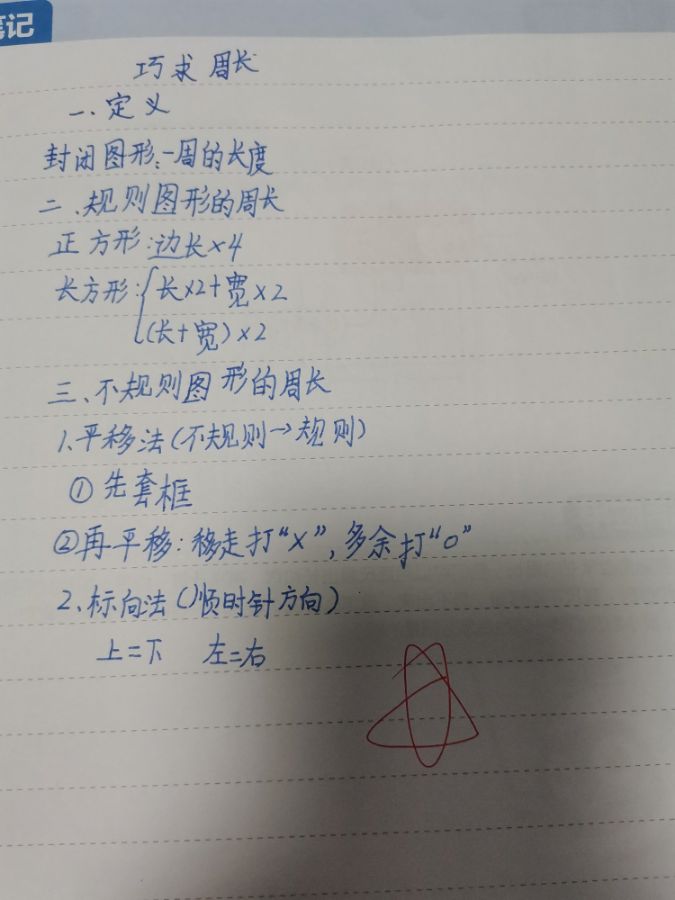 笔记
巧求周长
一、定义
封闭图形:一周的长度
二、规则图形的周长
正方形:边长×4
长方形:{长×2+宽×2
(长+宽)×2
三、不规则图形的周长
1.平移法(不规则→规则)
①先套框
②再平移:移走打“×”,多余打“○”
2.标向法(顺时针方向)
上=下 左=右